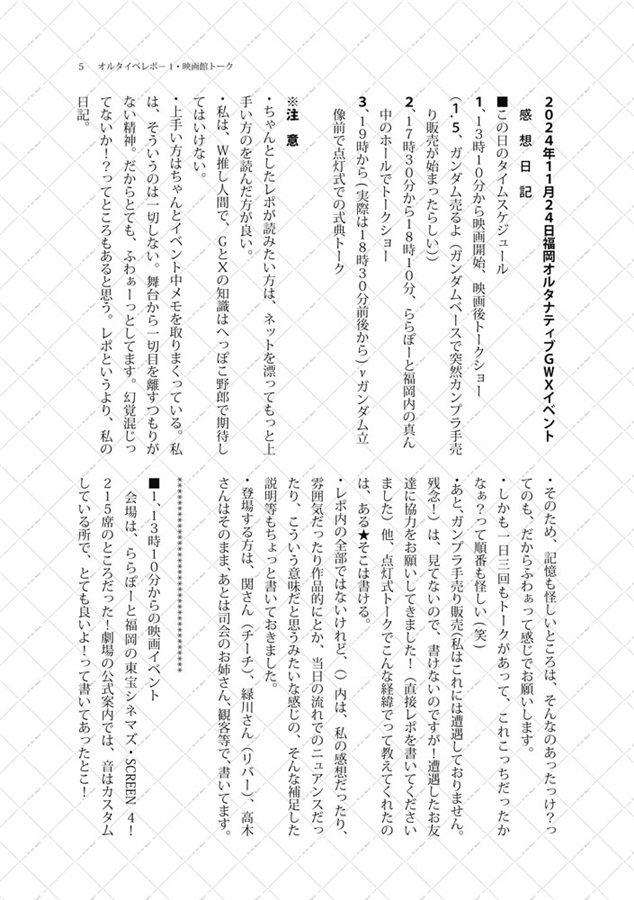 5　オルタイベレポ－1・映画館トーク
2024年11月24日福岡オルタナティブGWXイベント
感想日記
■この日のタイムスケジュール
1、13時10分から映画開始、映画後トークショー
（1.5、ガンダム売るよ（ガンダムベースで突然カンプラ手売
り販売が始まったらしい））
2、17時30分から18時10分、ららぽーと福岡内の真ん
中のホールでトークショー
3、19時から（実際は18時30分前後から）νガンダム立
像前で点灯式での式典トーク
※注　意
・ちゃんとしたレポが読みたい方は、ネットを漂ってもっと上
手い方のを読んだ方が良い。
・私は、W推し人間で、GとXの知識はへっぽこ野郎で期待し
てはいけない。
・上手い方はちゃんとイベント中メモを取りまくっている。私
は、そういうのは一切しない。舞台から一切目を離すつもりが
ない精神。だからとても、ふわぁーっとしてます。幻覚混じっ
てないか！？ってところもあると思う。レポというより、私の
日記。
・そのため、記憶も怪しいところは、そんなのあったっけ？っ
てのも、だからふわぁって感じでお願いします。
・しかも一日三回もトークがあって、これこっちだったか
なぁ？って順番も怪しい（笑）
・あと、ガンプラ手売り販売（私はこれには遭遇しておりません。
残念！）は、見てないので、書けないのですが！遭遇したお友
達に協力をお願いしてきました！（直接レポを書いてください
ました）他、点灯式トークでこんな経緯でって教えてくれたの
は、ある★そこは書ける。
・レポ内の全部ではないけれど、（）内は、私の感想だったり、
雰囲気だったり作品的にとか、当日の流れでのニュアンスだっ
たり、こういう意味だと思うみたいな感じの、そんな補足した
説明等もちょっと書いておきました。
・登場する方は、関さん（チーチ）、緑川さん（リバー）、高木
さんはそのまま、あとは司会のお姉さん、観客等で、書いてます。
＊＊＊＊＊＊＊＊＊＊＊＊＊＊＊＊＊＊＊＊＊＊＊＊
■1、13時10分からの映画イベント
会場は、ららぽーと福岡の東宝シネマズ・SCREEN 4！
215席のところだった！劇場の公式案内では、音はカスタム
している所で、とても良いよ！って書いてあったとこ！